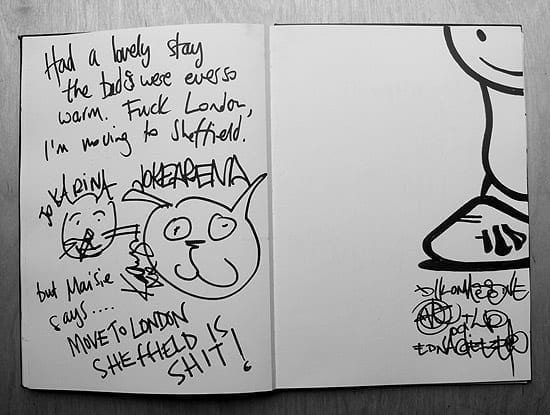 Had a lovely stay
the beds were ever so
warm. Fuck London,
I'm moving to Sheffield.
KARINA
JOKEARENA
but Maisie
says....
MOVE TO LONDON
SHEFFIELD IS
SHIT!